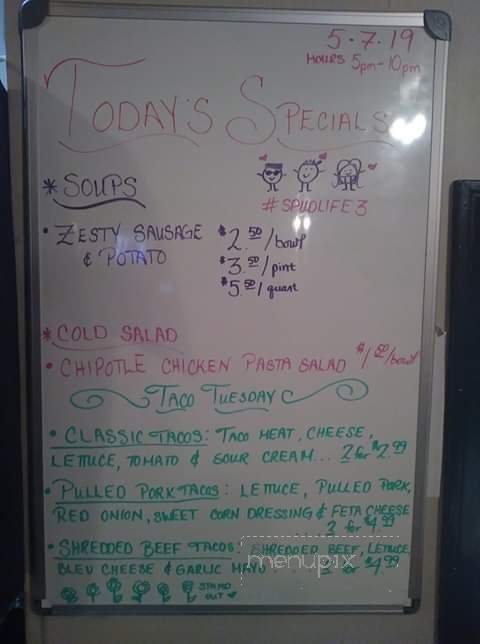 5.7.19
HOURS 5pm-10pm
TODAY'S SPECIALS
* SOUPS
#SPUDLIFE3
• ZESTY SAUSAGE $2.50/bowl
& POTATO $3.50/pint
$5.50/quart
* COLD SALAD
• CHIPOTLE CHICKEN PASTA SALAD $1.50/bowl
TACO TUESDAY
• CLASSIC TACOS: TACO MEAT, CHEESE,
LETTUCE, TOMATO & SOUR CREAM... 2 for $2.99
• PULLED PORK TACOS: LETTUCE, PULLED PORK,
RED ONION, SWEET CORN DRESSING & FETA CHEESE
... 2 for $4.99
• SHREDDED BEEF TACOS: SHREDDED BEEF, LETTUCE,
BLEU CHEESE & GARLIC MAYO... 2 for $4.99
menupix
STAND
OUT